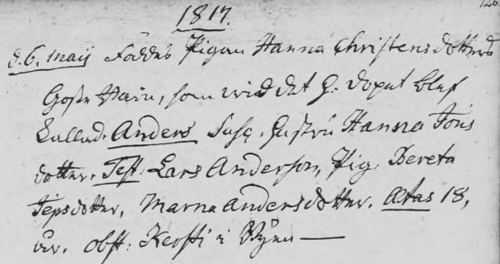 126
1817.
d. 6. Maij Föddes Pigan Hanna Christensdotters
Gosse Barn, som wid det H. dopet blef
kallad. Anders Susc. Hustru Hanna Jöns
dotter. Test. Lars Anderson, Pig. Bereta
Jepsdotter, Marna Andersdotter. Ætas 18,
år. obst: Kersti i Byen —